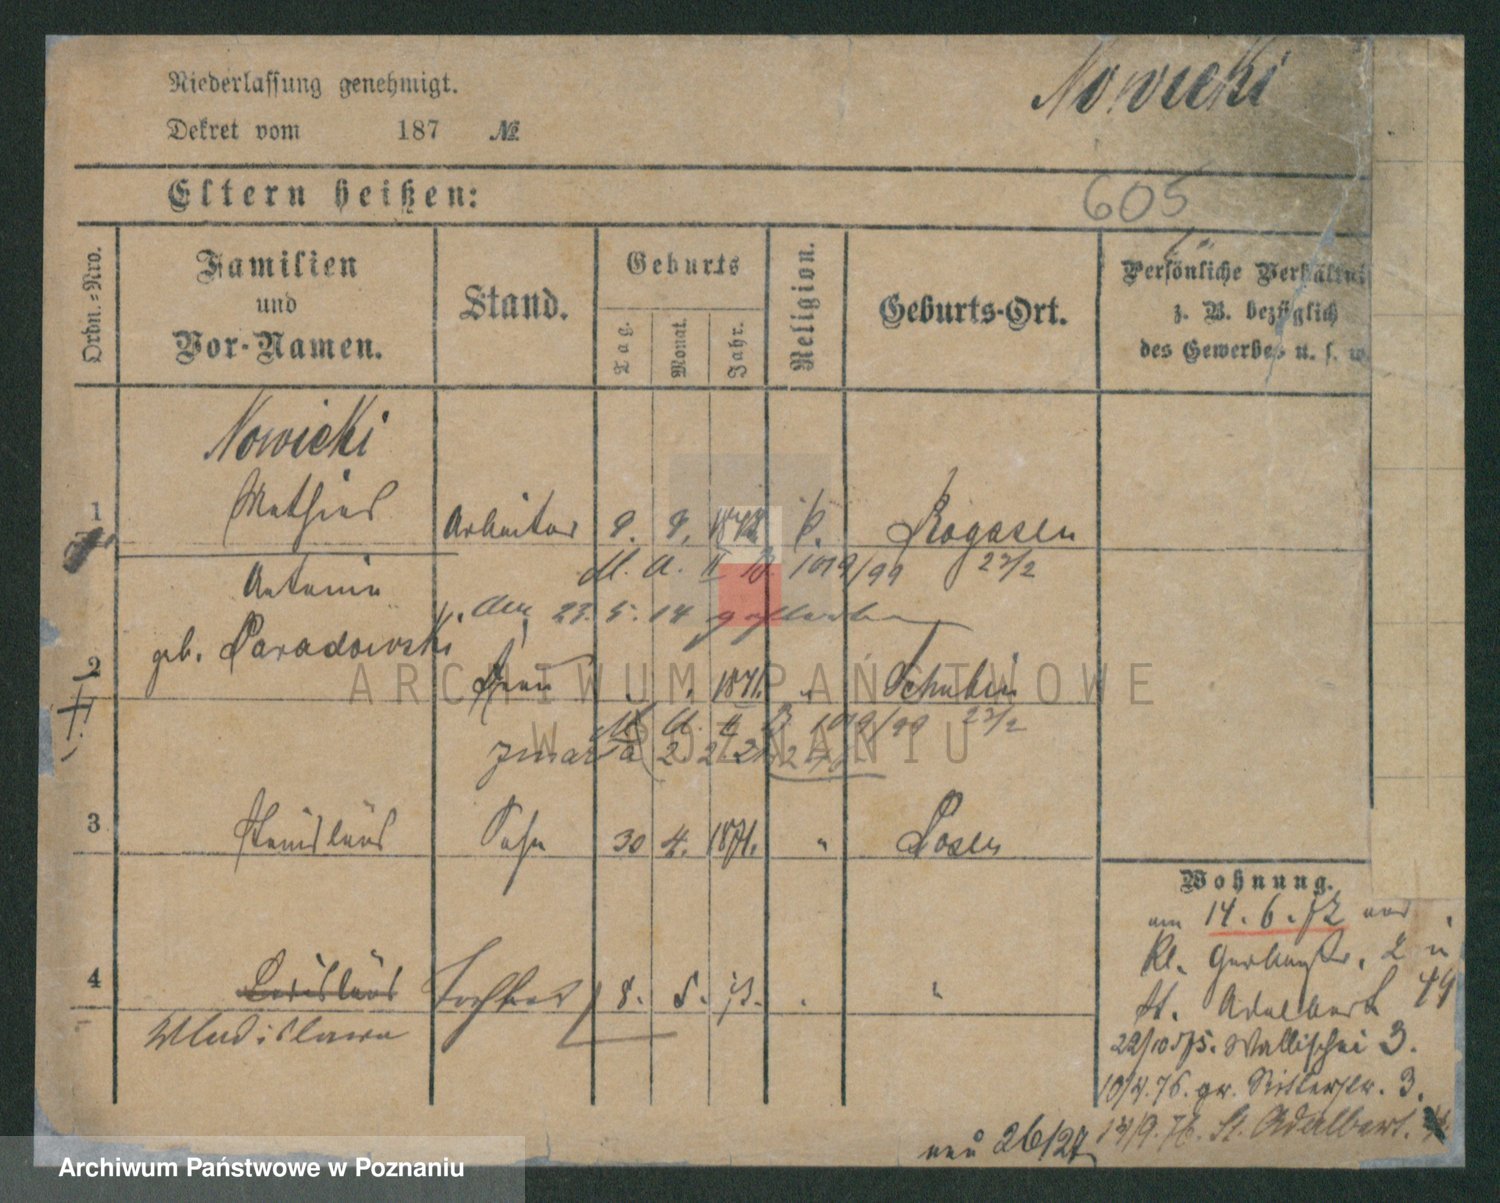 Niederlassung genehmigt.
Nowicki
Dekret vom 187 №
Eltern heißen:
605
Ordn.-Nro.
Familien
und
Vor-Namen.
Stand.
Geburts
Tag.
Monat.
Jahr.
Religion.
Geburts-Ort.
Persönliche Verhältni
z. B. bezüglich
des Gewerbes u. s. w.
Nowicki
1 Mathias Arbeiter 9. 9. k. Rogasen
M. A. II B. 1019/99 27/2
Antonie
am 23. 5. 14 gestorben
geb. Paradowski
2 Frau 1871. Schubin
M A II B 1019/99 27/2
zmarła 2. 2
3 Stanislaus Sohn 30 4. 1871. " Posen
Wohnung.
am 14. 6. 72
Kl. Gerberstr. 2
4 Tochter 8. 5. 73. "
St. Adalbert 49
Wladislawa
22/10 75. Wallischei 3.
10/4. 76. gr. Ritterstr. 3.
13/9. 76. St. Adalbert.
neu 26/27
ARCHIWUM PAŃSTWOWE
W POZNANIU
Archiwum Państwowe w Poznaniu